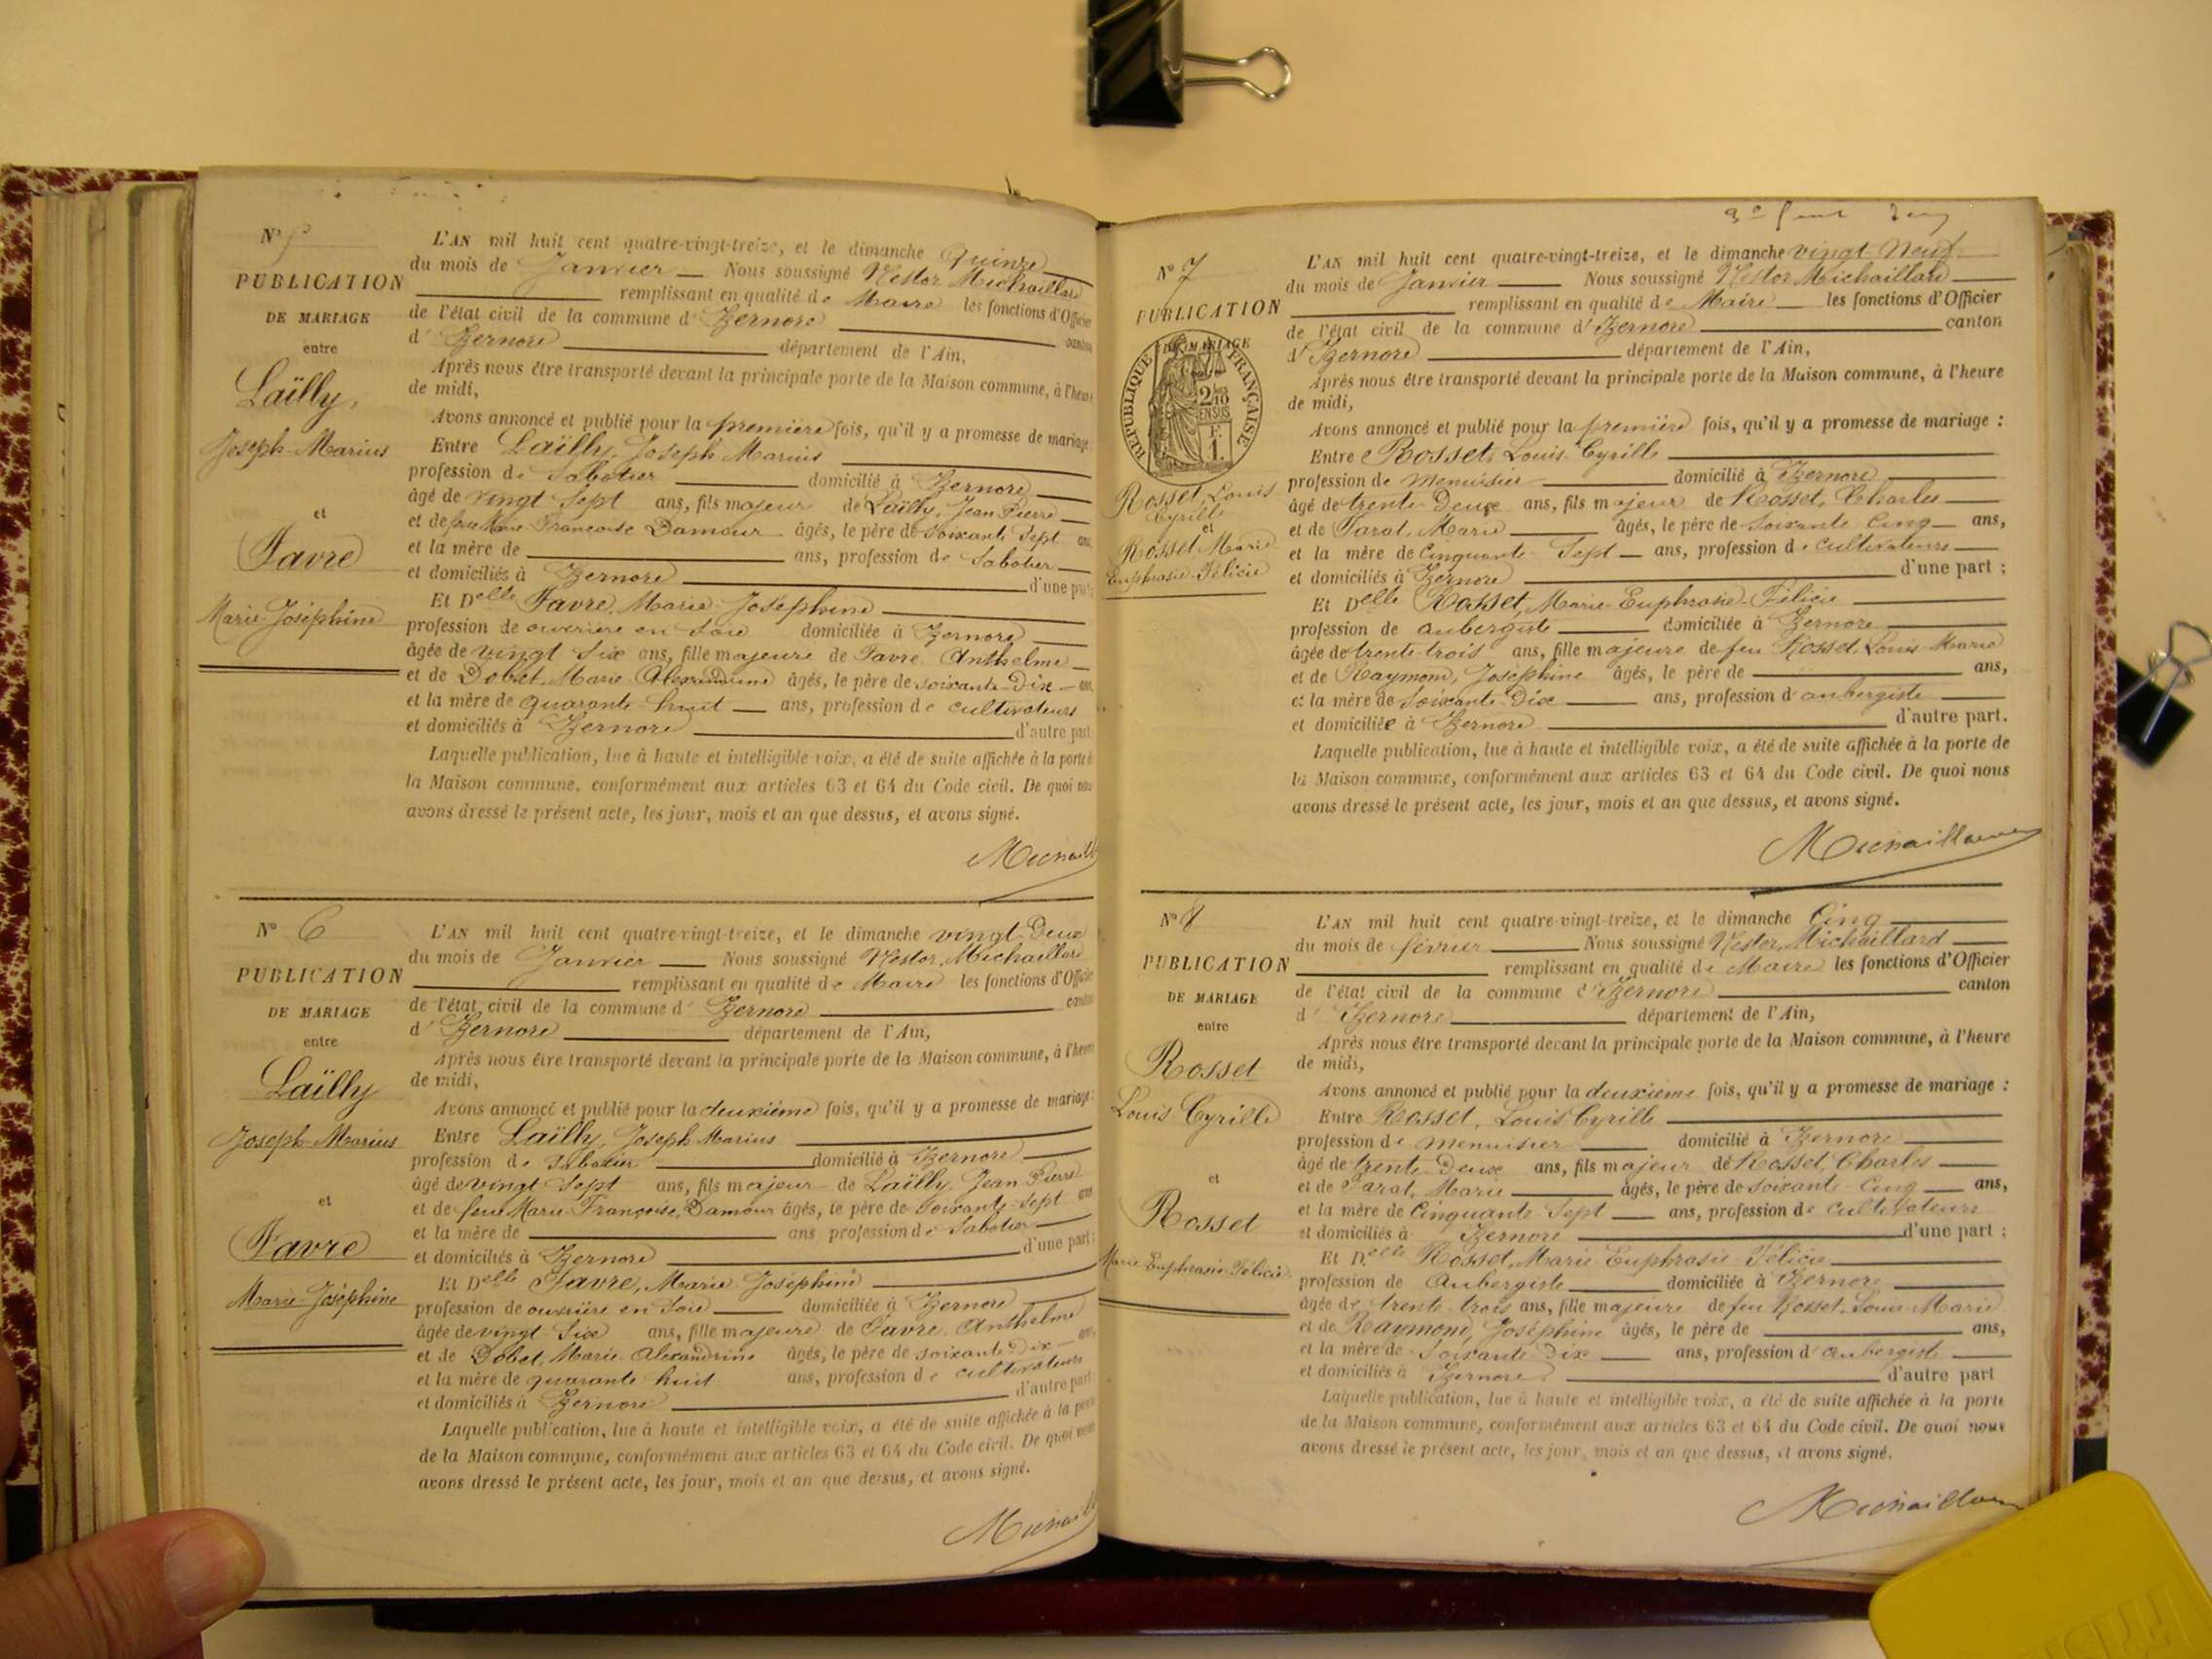 N° 5
PUBLICATION
DE MARIAGE
entre
Laïlly,
Joseph-Marius
et
Favre
Marie-Joséphine
L'AN mil huit cent quatre-vingt-treize, et le dimanche Quinze
du mois de Janvier Nous soussigné Nestor Michaillard
remplissant en qualité de Maire les fonctions d'Officier
de l'état civil de la commune d'Izernore canton
d'Izernore département de l'Ain,
Après nous être transporté devant la principale porte de la Maison commune, à l'heure
de midi,
Avons annoncé et publié pour la première fois, qu'il y a promesse de mariage:
Entre Laïlly, Joseph Marius
profession de Sabotier domicilié à Izernore
âgé de vingt Sept ans, fils majeur de Laïlly, Jean Pierre
et de feue Marie Françoise Damour âgés, le père de Soixante Sept ans
et la mère de ans, profession de Sabotier
et domiciliés à Izernore d'une part;
Et Delle Favre, Marie-Joséphine
profession de ouvrière en Soie domiciliée à Izernore
âgée de vingt Six ans, fille majeure de Favre, Anthelme
et de Dobet, Marie-Alexandrine âgés, le père de soixante-Dix ans
et la mère de quarante huit ans, profession de cultivateurs
et domiciliés à Izernore d'autre part
Laquelle publication, lue à haute et intelligible voix, a été de suite affichée à la porte de
la Maison commune, conformément aux articles 63 et 64 du Code civil. De quoi nous
avons dressé le présent acte, les jour, mois et an que dessus, et avons signé.
Michaill
N° 6
PUBLICATION
DE MARIAGE
entre
Laïlly
Joseph-Marius
et
Favre
Marie-Joséphine
L'AN mil huit cent quatre-vingt-treize, et le dimanche vingt-Deux
du mois de Janvier Nous soussigné Nestor, Michaillard
remplissant en qualité de Maire les fonctions d'Officier
de l'état civil de la commune d'Izernore canton
d'Izernore département de l'Ain,
Après nous être transporté devant la principale porte de la Maison commune, à l'heure
de midi,
Avons annoncé et publié pour la deuxième fois, qu'il y a promesse de mariage:
Entre Laïlly, Joseph Marius
profession de Sabotier domicilié à Izernore
âgé de vingt Sept ans, fils majeur de Laïlly, Jean Pierre
et de feue Marie Françoise, Damour âgés, le père de Soixante-Sept ans
et la mère de ans profession de Sabotier
et domiciliés à Izernore d'une part;
Et Delle Favre, Marie-Joséphine
profession de ouvrière en Soie domiciliée à Izernore
âgée de vingt-Six ans, fille majeure de Favre, Anthelme
et de Dobet, Marie-Alexandrine âgés, le père de soixante-Dix ans,
et la mère de quarante huit ans, profession de cultivateurs
et domiciliés à Izernore d'autre part
Laquelle publication, lue à haute et intelligible voix, a été de suite affichée à la porte
de la Maison commune, conformément aux articles 63 et 64 du Code civil. De quoi nous
avons dressé le présent acte, les jour, mois et an que dessus, et avons signé.
Michaill
N° 7
PUBLICATION
DE MARIAGE
RÉPUBLIQUE FRANÇAISE
2/10
EN SUS
F.
1.
Rosset, Louis
Cyrille
et
Rosset Marie
Euphrasie-Félicie
L'AN mil huit cent quatre-vingt-treize, et le dimanche vingt-Neuf
du mois de Janvier Nous soussigné Nestor Michaillard
remplissant en qualité de Maire les fonctions d'Officier
de l'état civil de la commune d'Izernore canton
d'Izernore département de l'Ain,
Après nous être transporté devant la principale porte de la Maison commune, à l'heure
de midi,
Avons annoncé et publié pour la première fois, qu'il y a promesse de mariage :
Entre Rosset, Louis Cyrille
profession de Menuisier domicilié à Izernore
âgé de trente-Deux ans, fils majeur de Rosset, Charles
et de Tarat, Marie âgés, le père de Soixante Cinq ans,
et la mère de Cinquante-Sept ans, profession de cultivateurs
et domiciliés à Izernore d'une part ;
Et Delle Rosset, Marie-Euphrasie-Félicie
profession de aubergiste domiciliée à Izernore
âgée de trente-trois ans, fille majeure de feu Rosset, Louis-Marie
et de Raymond, Joséphine âgés, le père de ans,
et la mère de Soixante Dix ans, profession d'aubergiste
et domiciliée à Izernore d'autre part.
Laquelle publication, lue à haute et intelligible voix, a été de suite affichée à la porte de
la Maison commune, conformément aux articles 63 et 64 du Code civil. De quoi nous
avons dressé le présent acte, les jour, mois et an que dessus, et avons signé.
Michaillard
N° 8
PUBLICATION
DE MARIAGE
entre
Rosset
Louis Cyrille
et
Rosset
Marie Euphrasie-Félicie
L'AN mil huit cent quatre-vingt-treize, et le dimanche Cinq
du mois de février Nous soussigné Nestor, Michaillard
remplissant en qualité de Maire les fonctions d'Officier
de l'état civil de la commune d'Izernore canton
d'Izernore département de l'Ain,
Après nous être transporté devant la principale porte de la Maison commune, à l'heure
de midi,
Avons annoncé et publié pour la deuxième fois, qu'il y a promesse de mariage :
Entre Rosset, Louis Cyrille
profession de menuisier domicilié à Izernore
âgé de trente-Deux ans, fils majeur de Rosset, Charles
et de Tarat, Marie âgés, le père de soixante-Cinq ans,
et la mère de Cinquante Sept ans, profession de cultivateurs
et domiciliés à Izernore d'une part ;
Et Delle Rosset, Marie Euphrasie Félicie
profession de Aubergiste domiciliée à Izernore
âgée de trente-trois ans, fille majeure de feu Rosset, Louis-Marie
et de Raymond, Joséphine âgés, le père de ans,
et la mère de Soixante Dix ans, profession d'aubergiste
et domiciliés à Izernore d'autre part
Laquelle publication, lue à haute et intelligible voix, a été de suite affichée à la porte
de la Maison commune, conformément aux articles 63 et 64 du Code civil. De quoi nous
avons dressé le présent acte, les jour, mois et an que dessus, et avons signé.
Michaillard